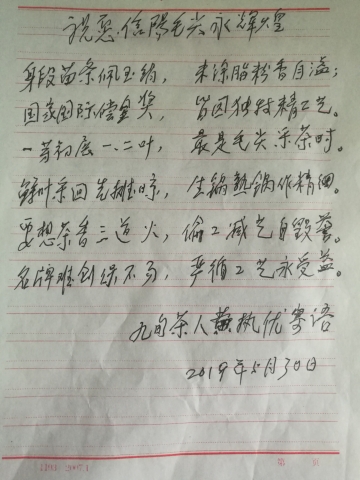 祝愿信陽毛尖永輝煌
身段苗条佩玉绢，未涂脂粉香自溢；
国家国际偿金奖，皆因独特精工艺。
一芽初展一、二叶，最是毛尖采茶时。
鲜叶采回先摊晾，生锅熟锅作精细。
要想茶香三道火，偷工减艺自毁誉。
名牌难创保不易，严循工艺永受益。
九旬茶人黄执优寄语
2019年5月30日
第 页